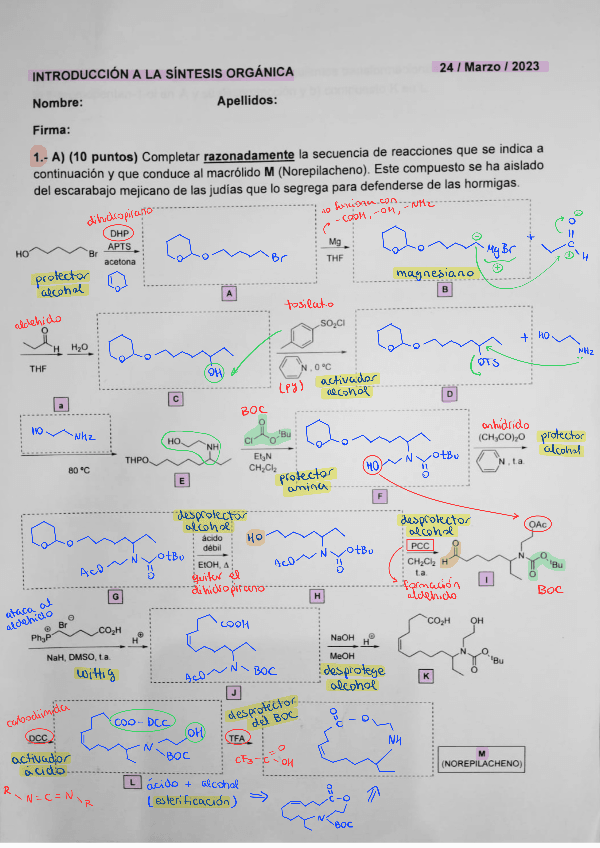 INTRODUCCIÓN A LA SÍNTESIS ORGÁNICA
24 / Marzo / 2023
Nombre: Apellidos:
Firma:
1.- A) (10 puntos) Completar razonadamente la secuencia de reacciones que se indica a
continuación y que conduce al macrólido M (Norepilacheno). Este compuesto se ha aislado
del escarabajo mejicano de las judías que lo segrega para defenderse de las hormigas.
dihidropirano
no funciona con
-COOH, -OH, -NH2
HO Br
DHP
APTS
acetona
protector
alcohol
O O Br
A
Mg
THF
O O MgBr
magnesiano
B
+ O H
aldehído
O H
THF
H2O
a
O O OH
C
tosilato
SO2Cl
N , 0 ºC
(Py)
activador
alcohol
O O OTS
D
+ HO NH2
HO NH2
80 ºC
HO NH
THPO
E
BOC
Cl O O tBu
Et3N
CH2Cl2
protector
amina
O O HO N O OtBu
F
anhídrido
(CH3CO)2O
N , t.a.
protector
alcohol
O O AcO N O OtBu
G
desprotector
alcohol
ácido
débil
EtOH, Δ
quitar el
dihidropirano
HO AcO N O OtBu
H
desprotector
alcohol
PCC
CH2Cl2
t.a.
formación
aldehído
O H OAc N O O tBu
I
BOC
ataca al
aldehído
Br
Ph3P CO2H
NaH, DMSO, t.a.
H
Wittig
COOH
AcO N BOC
J
NaOH H
MeOH
desprotege
alcohol
CO2H OH N O O tBu
K
carbodiimida
DCC
activador
ácido
R N=C=N R
COO-DCC OH
N BOC
L
desprotector
del BOC
TFA
CF3-C O OH
C-O O NH
M
(NOREPILACHENO)
ácido + alcohol
(esterificación) ⇒
C-O O N BOC